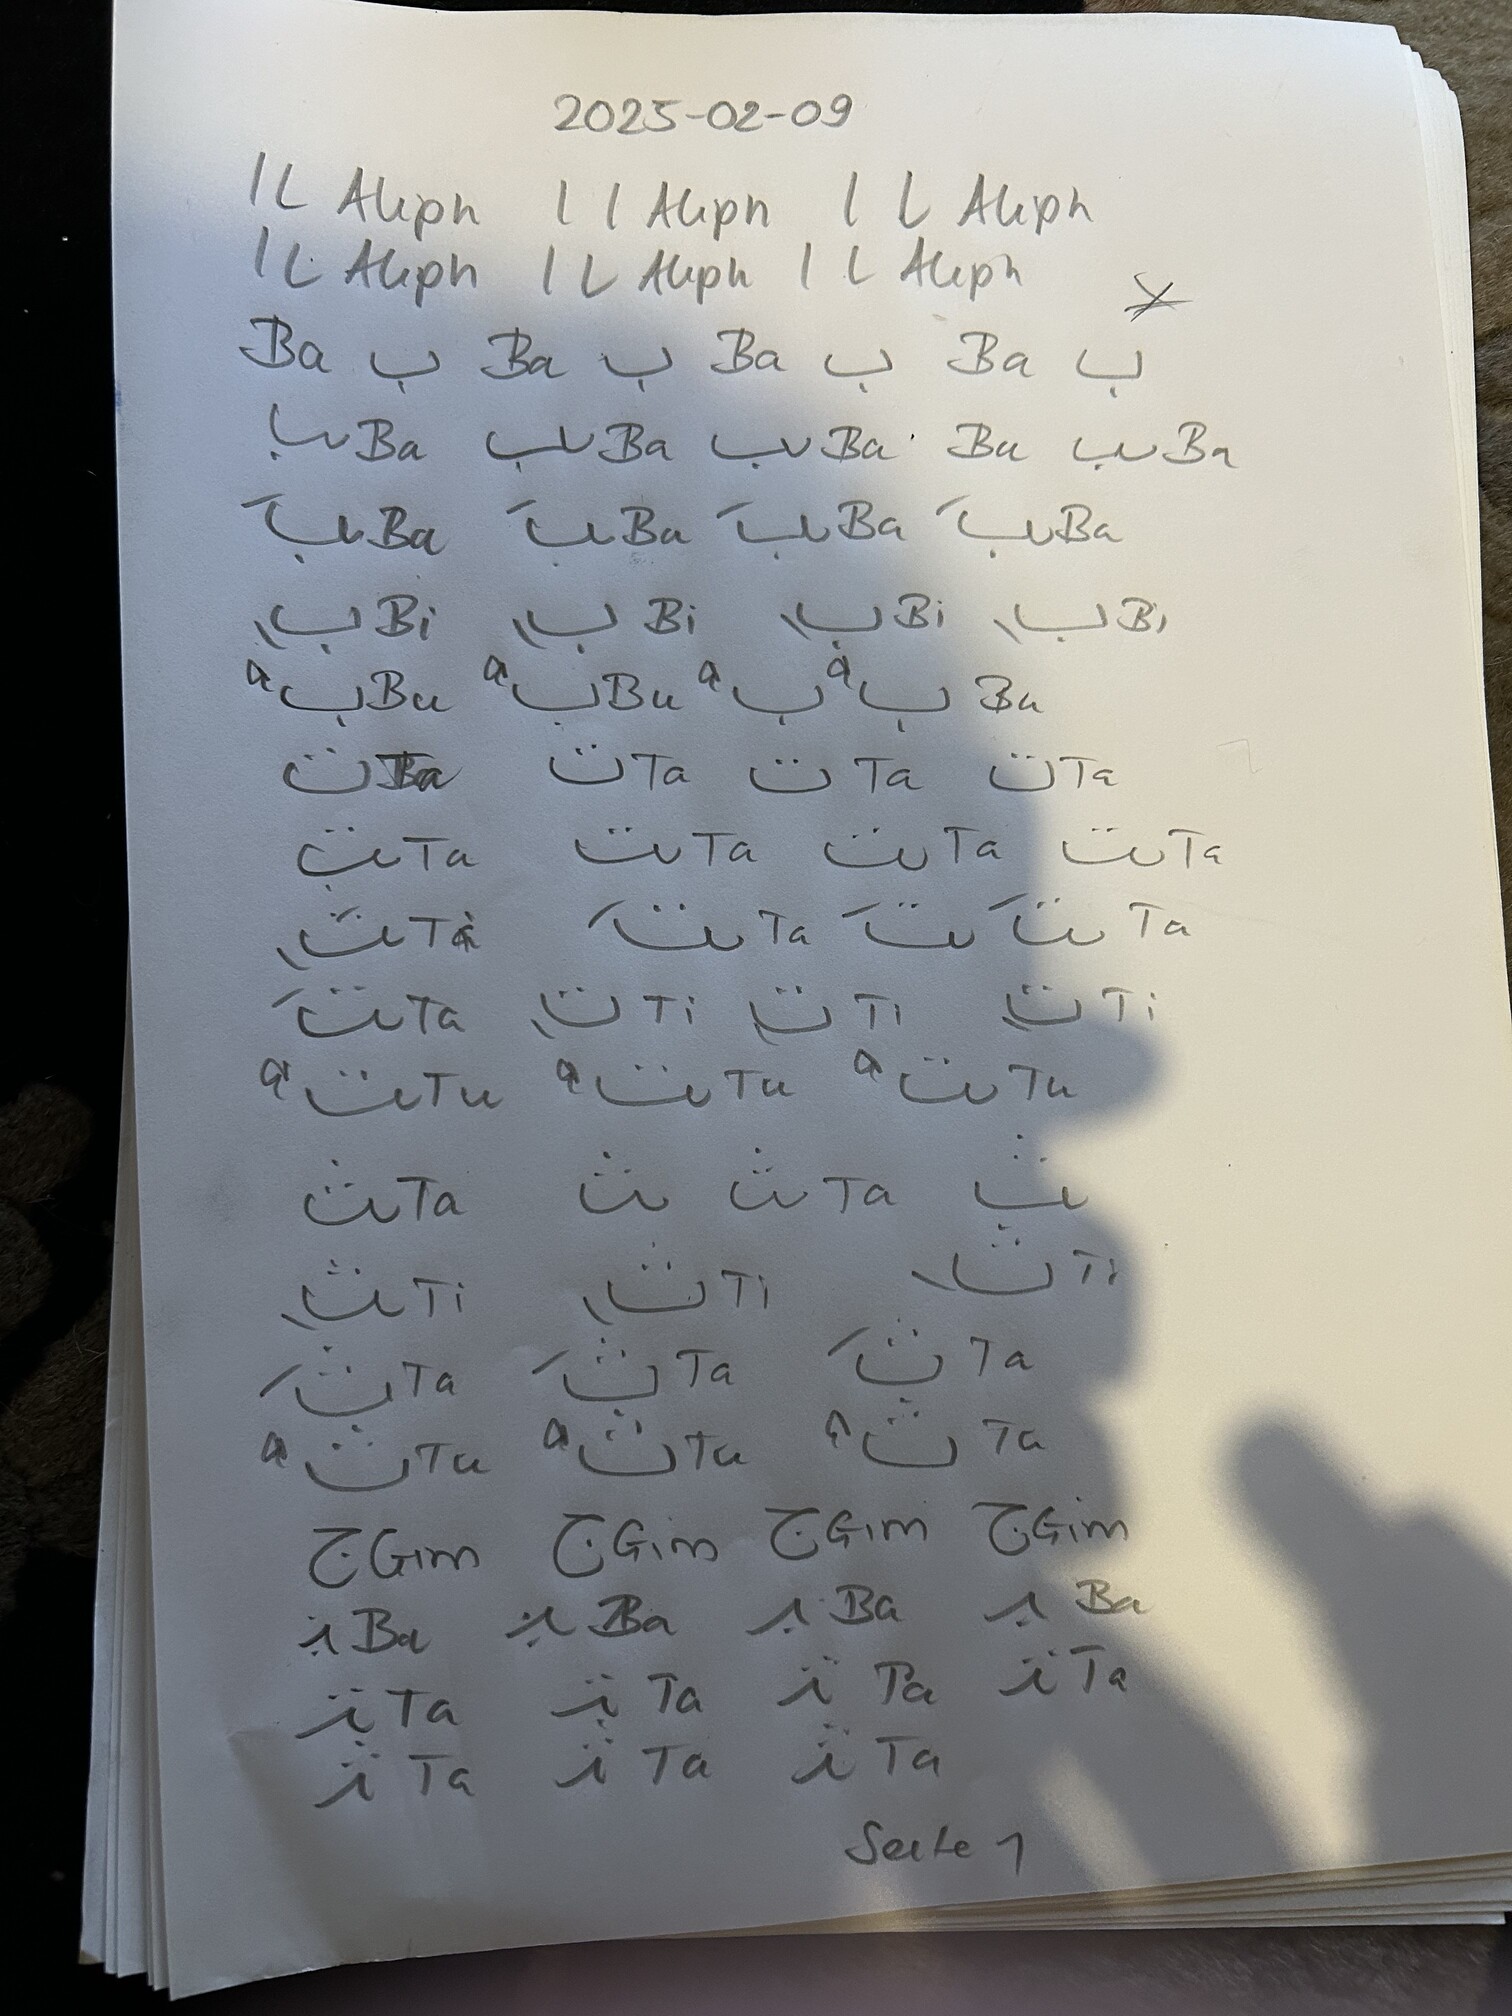 2025-02-09
ا ـا Aliph ا ا Aliph ا ـا Aliph
ا ـا Aliph ا ـا Aliph ا ـا Aliph
Ba ب Ba ب Ba ب Ba ب
ـب Ba ـب Ba ـب Ba Ba ـب Ba
ـبَ Ba ـبَ Ba ـبَ Ba ـبَ Ba
بِ Bi بِ Bi بِ Bi بِ Bi
بُ Bu بُ Bu بُ بُ Bu
ت Ta ت Ta ت Ta ت Ta
ـت Ta ـت Ta ـت Ta ـت Ta
ـت Ta ـتَ Ta ـتَ ـتَ Ta
ـتَ Ta تِ Ti تِ Ti تِ Ti
ـتُ Tu ـتُ Tu ـتُ Tu
ـث Ta ـث ـث Ta ـث
ـثِ Ti ثِ Ti ثِ Ti
ثَ Ta ثَ Ta ثَ Ta
ثُ Tu ثُ Tu ثُ Ta
ج Gim ج Gim ج Gim ج Gim
ـبـ Ba ـبـ Ba ـبـ Ba ـبـ Ba
ـتـ Ta ـتـ Ta ـتـ Ta ـتـ Ta
ـتـ Ta ـتـ Ta ـتـ Ta
Seite 1